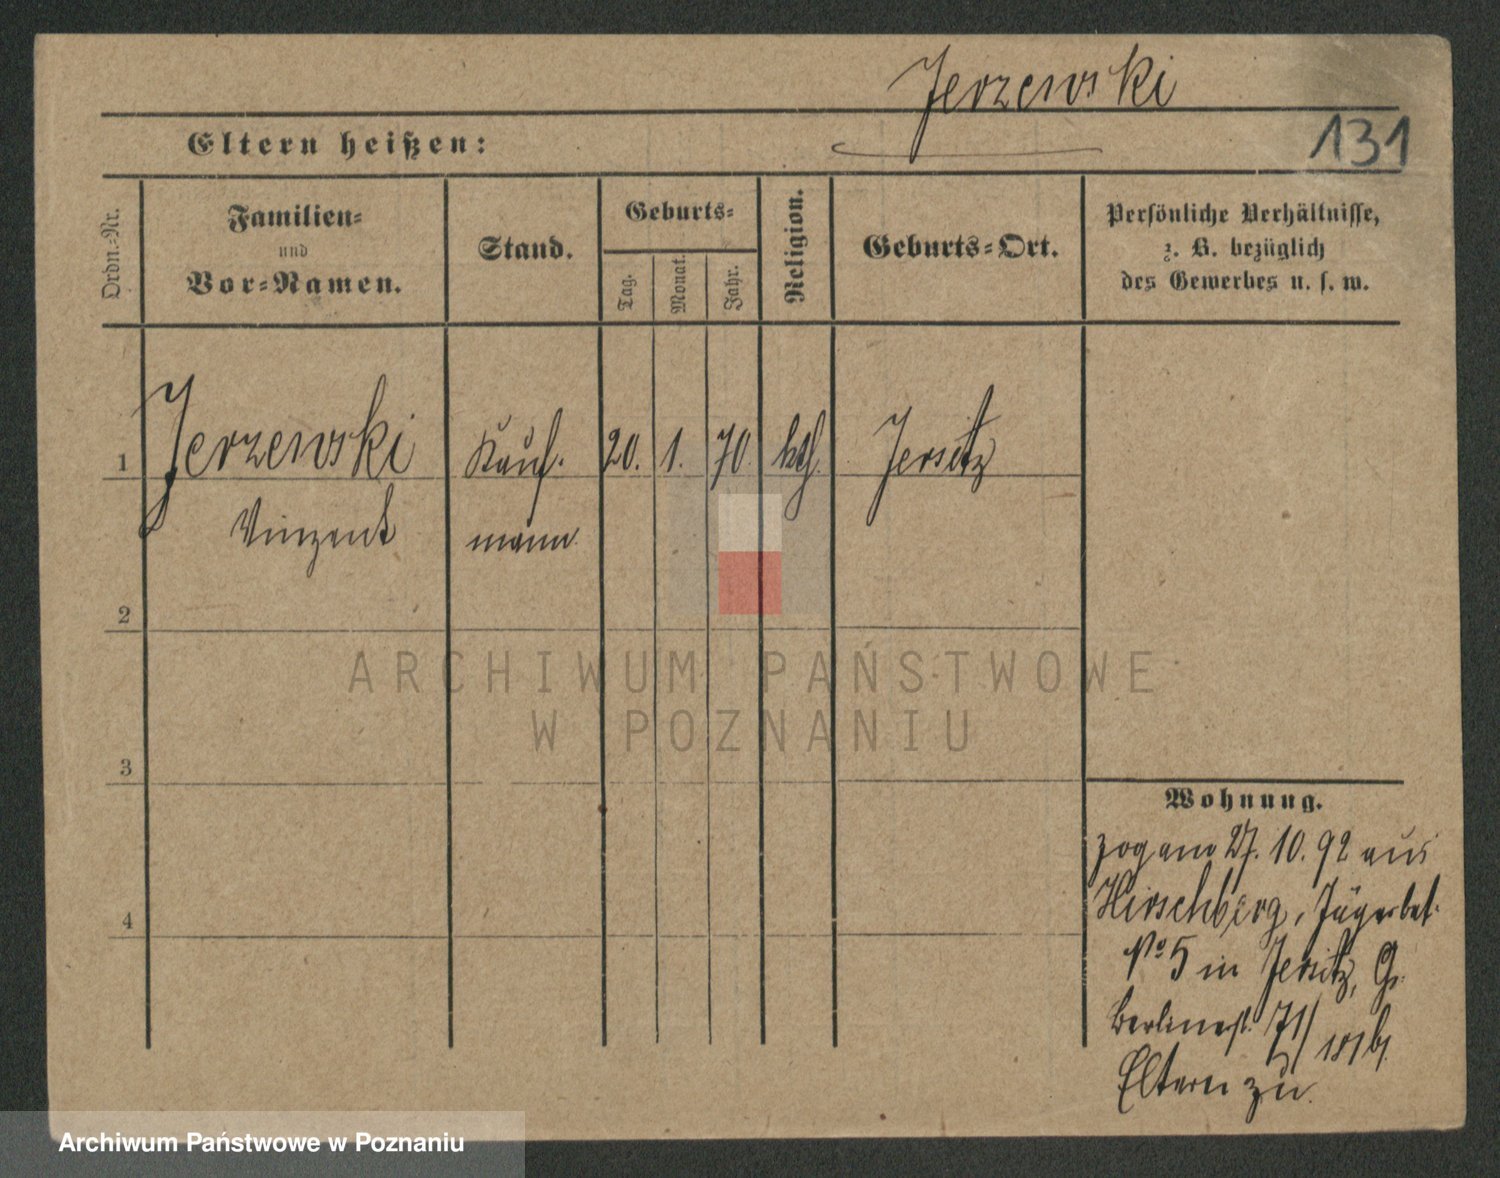 Jerzewski
131
Eltern heißen:
Ordn.-Nr.
Familien-
und
Vor-Namen.
Stand.
Geburts-
Tag.
Monat.
Jahr.
Religion.
Geburts-Ort.
Persönliche Verhältnisse,
z. B. bezüglich
des Gewerbes u. s. w.
1
Jerzewski Kauf- 20. 1. 70 kth. Jersitz
Vinzent mann
2
3
4
Wohnung.
zog am 27. 10. 92 aus
Hirschberg, Jägerbat.
No 5 in Jersitz, Gr.
Berlinerst. 71/
Eltern zu.
ARCHIWUM PAŃSTWOWE
W POZNANIU
Archiwum Państwowe w Poznaniu